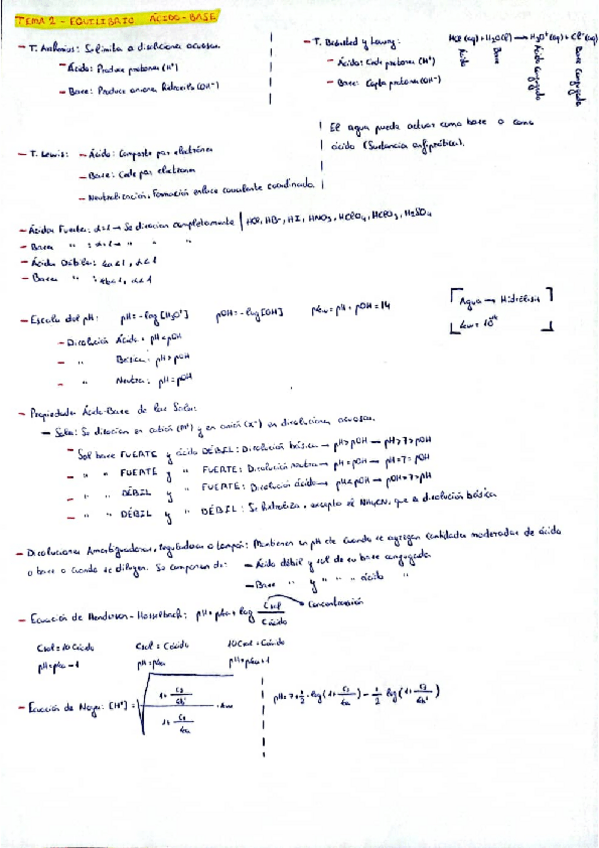 TEMA 2 - EQUILIBRIO ÁCIDO-BASE
- T. Arrhenius: Se limita a disoluciones acuosas
- Ácido: Produce protones (H⁺)
- Base: Produce aniones Hidroxilo (OH⁻)
- T. Brönsted y Lowry:
- Ácido: Cede protones (H⁺)
- Base: Capta protones (OH⁻)
HCl (aq) + H₂O(l) → H₃O⁺ (aq) + Cl⁻ (aq)
Ácido Base Ácido conjugado Base conjugada
El agua puede actuar como base o como
ácido (Sustancia anfiprótica).
- T. Lewis: - Ácido: Compuesto par electrónico
- Base: Cede par electrones
- Neutralización. Formación enlace covalente coordinado.
- Ácidos Fuertes: α=1 → Se disocian completamente | HCl, HBr, HI, HNO₃, HClO₄, HClO₃, H₂SO₄
- Base " : α=1 → " "
- Ácido Débiles: ka<1, α<1
- Base " : kb<1, α<1
- Escala del pH: pH=-log[H₃O⁺] pOH=-log[OH] pkw=pH+pOH=14
Agua → Hidrólisis
kw = 10⁻¹⁴
- Disolución Ácida: pH<pOH
- " Básica: pH>pOH
- " Neutra: pH=pOH
- Propiedades Ácido-Base de las Sales:
- Sales: Se disocian en catión (M⁺) y en anión (X⁻) en disoluciones acuosas.
- Sal base FUERTE y ácido DÉBIL: Disolución básica → pH>pOH → pH>7>pOH
- " " FUERTE y " FUERTE: Disolución neutra → pH=pOH → pH=7=pOH
- " " DÉBIL y " FUERTE: Disolución ácida → pH<pOH → pOH>7>pH
- " " DÉBIL y " DÉBIL: Se hidroliza, excepto el NH₄CN, que es disolución básica
- Disoluciones Amortiguadoras, reguladoras o tampón: Mantienen su pH cte cuando se agregan cantidades moderadas de ácido
o base o cuando se diluyen. Se componen de: - Ácido débil y sal de su base conjugada
- Base " y " " " ácido "
- Ecuación de Henderson-Hasselbach: pH=pka+log Csal/Cácido → Concentración
Csal=10Cácido Csal=Cácido 10Csal=Cácido
pH=pka-1 pH=pka pH=pka+1
- Ecuación de [H⁺]=